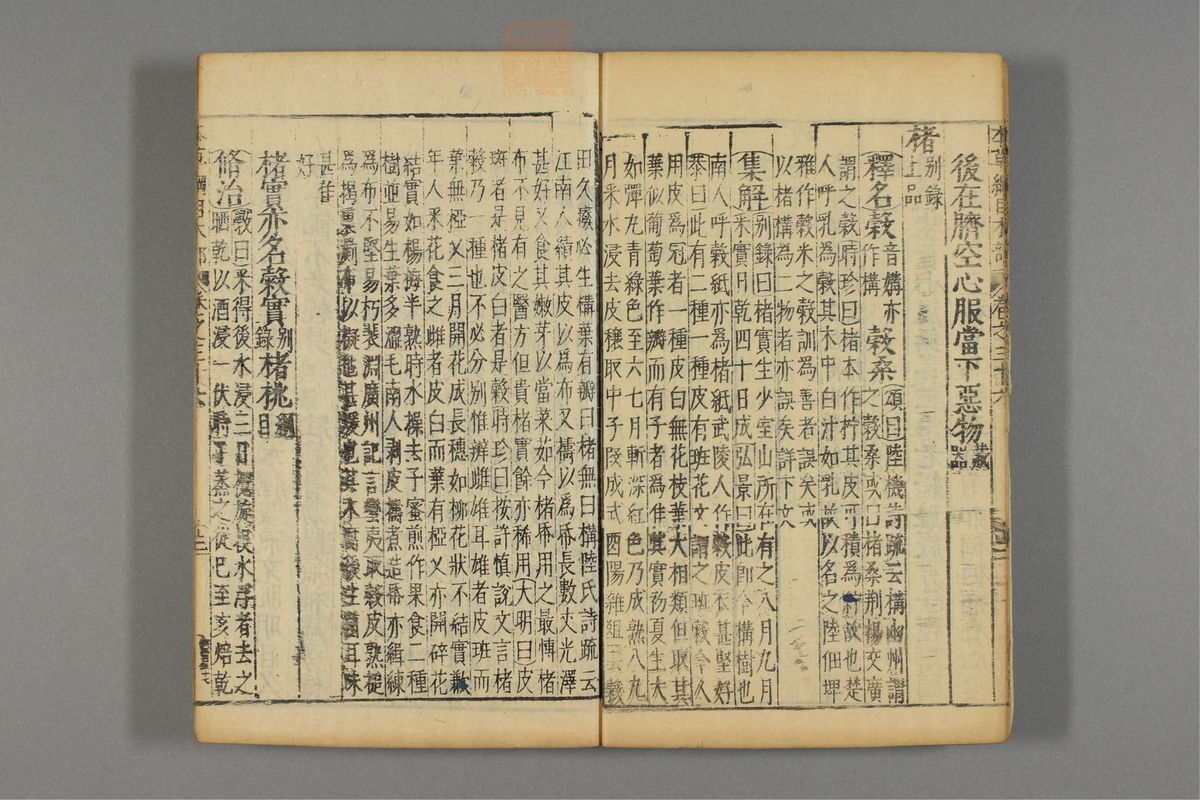 後在臍空心服當下惡物
楮別錄上品
釋名榖音媾亦作構榖桑頌曰陸機詩疏云構幽州謂
之榖桑或曰楮桑荆楊交廣
謂之榖時珍曰楮本作柠其皮可積為紵故也楚
人呼乳為榖其木中白汁如乳故以名之陸佃埤
雅作榖米之榖訓為善者誤矣或
以楮構為二物者亦誤矣詳下文
集解別錄曰楮實生少室山所在有之八月九月
采實日乾四十日成弘景曰此即今構樹也
南人呼榖紙亦為楮紙武陵人作榖皮衣甚堅好
恭曰此有二種一種皮有斑花文謂之斑榖今人
用皮為冠者一種皮白無花枝葉大相類但取其
葉似葡萄葉作瓣而有子者為佳其實初夏生大
如彈丸青綠色至六七月漸深紅色乃成熟八九
月采水浸去皮穰取中子段成式酉陽雜俎云榖
田久廢必生構葉有瓣曰楮無曰構陸氏詩疏云
江南人績其皮以為布又擣以為帋長數丈光澤
甚好又食其嫩芽以當菜茹今楮帋用之最愽楮
布不見有之醫方但貴楮實餘亦稀用大明曰皮
斑者是楮皮白者是榖時珍曰按許慎說文言楮
榖乃一種也不必分別惟辨雌雄耳雄者皮斑而
葉無椏叉三月開花成長穗如柳花狀不結實歉
年人采花食之雌者皮白而葉有椏叉亦開碎花
結實如楊梅半熟時水澡去子蜜煎作果食二種
樹並易生葉多澀毛南人剥皮擣煮造帋亦緝練
為布不堅易朽裴淵廣州記言蠻夷取榖皮熟槌
為揭裏罽布以擬氊甚煖也其木腐後生菌耳味
甚佳
好
楮實亦名榖實別錄楮桃綱目
脩治斆曰采得後水浸三日攪旋投水浮者去之
晒乾以酒浸一伏時了蒸之從巳至亥焙乾